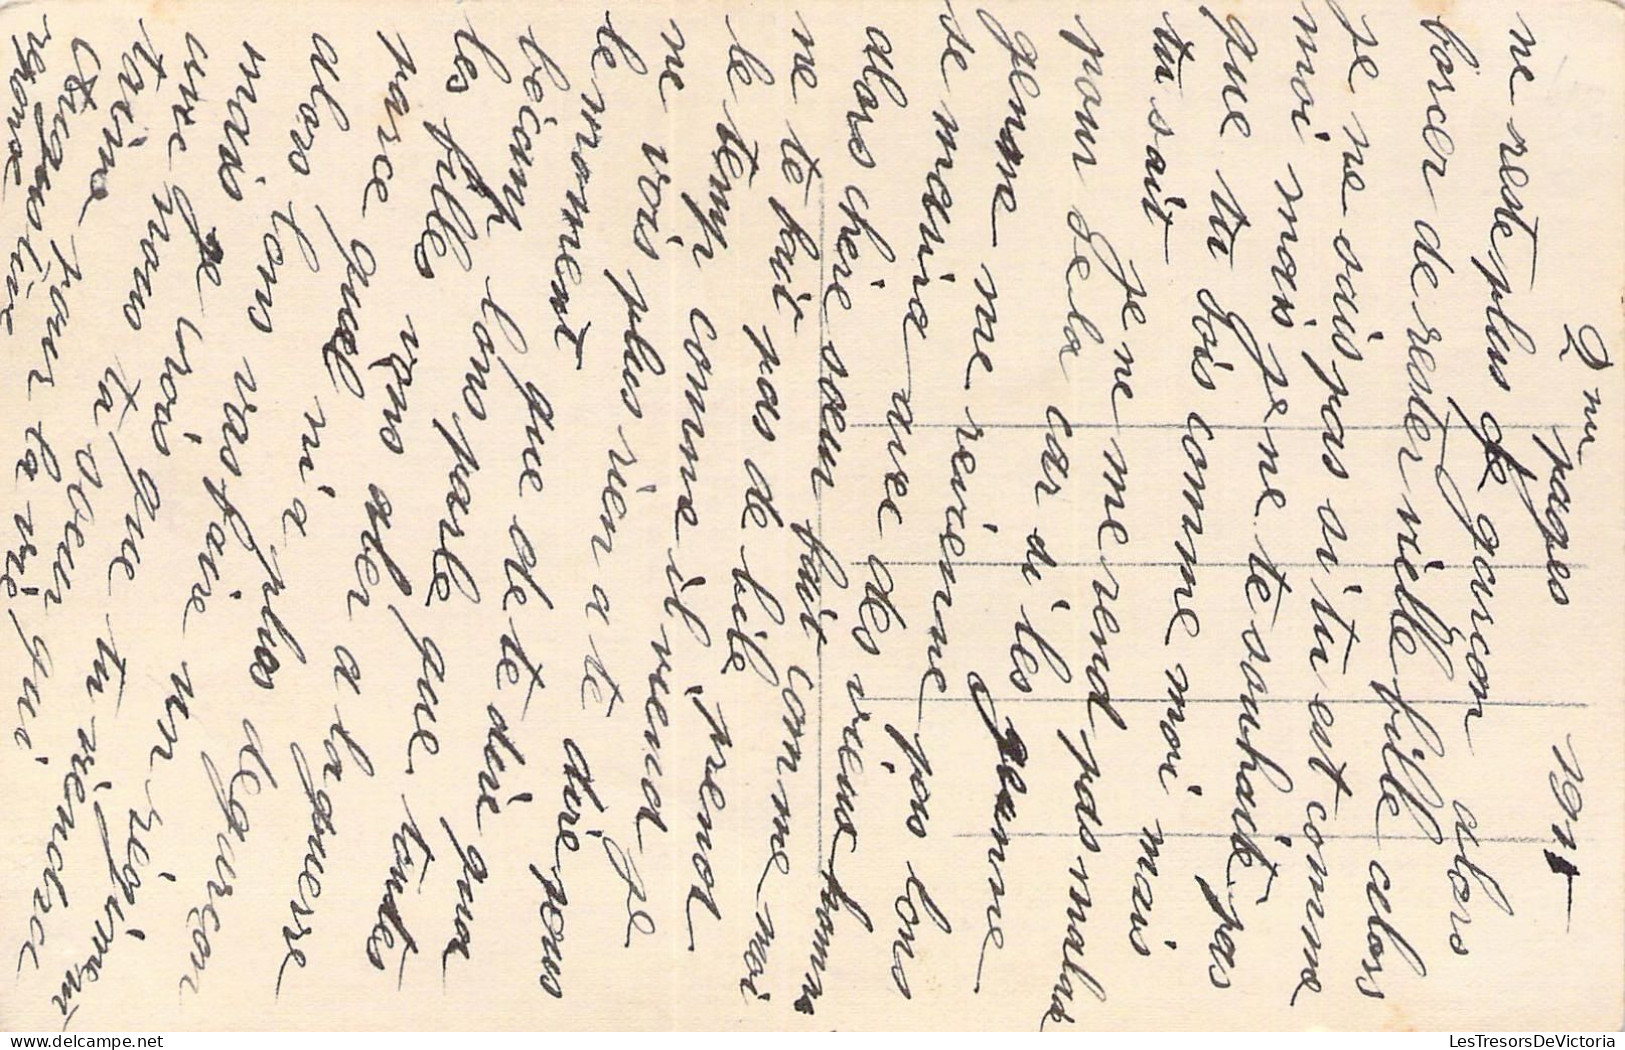 2 me pages 1917
ne reste plus de garcon alors
borcer de rester vielle fille alors
je ne sais pas si tu est comme
moi mais je ne te souhaite pas
que tu sois comme moi mais
tu sait je ne me rend pas malade
pour sela car si les jeunne
genne me revienne pas lons
se marira avec des vieux homme
alors chère sœur fait comme moi
ne te fait pas de bile prend
le temp comme il viend
ne vois plus rien a te dire pour
le moment que de te dire que
bécamp lons parle que toutes
les filles vons aler a la guerre
parce quel ni a plus de garcon
alors lons vas faire un régiment
mais je crois que tu viendra
avec nous ta sœur qui
taime pour la vie
Augustine
reponse
LesTresorsDeVictoria